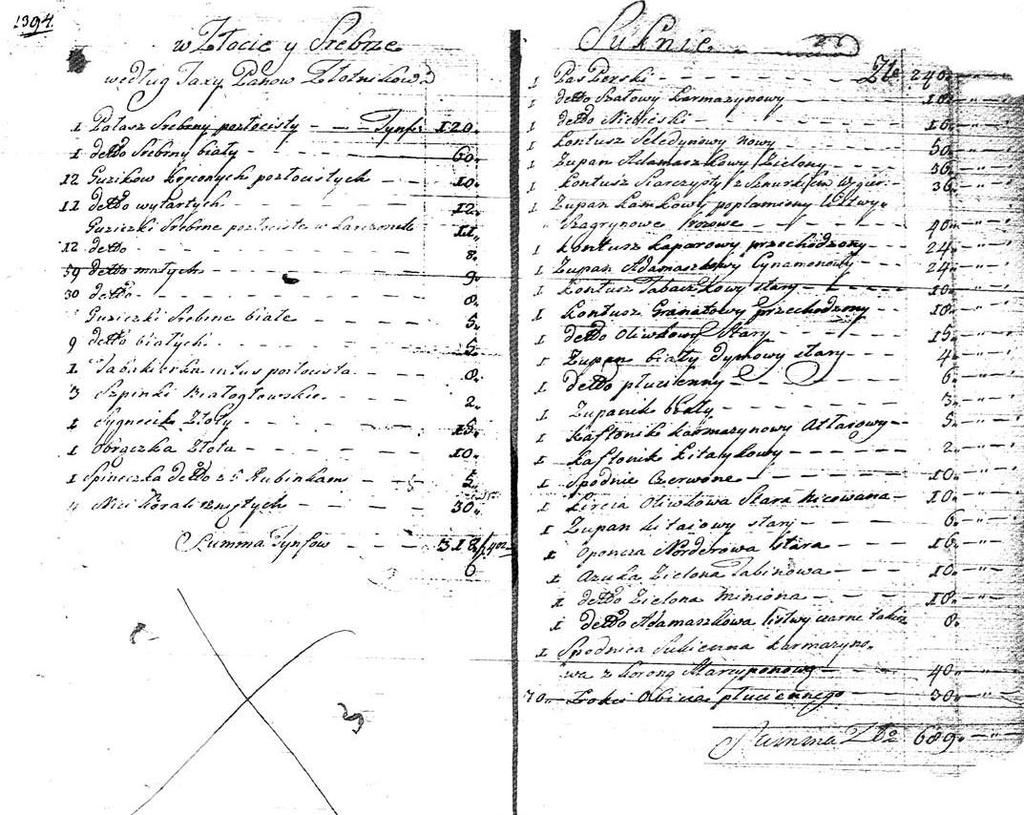 1394.
w Złocie y Srebrze
według Taxy Panow Złotnikow
1 Pałasz Srebrny pozłocisty - - - Tynf: 120.
1 detto Srebrny biały - - - 60.
12 Guzikow kręconych pozłocistych - 10.
11 detto wytartych - - 12.
Guziczki Srebrne pozłociste w karczonite 11.
12 detto - - - 8.
59 detto małych - - - 9.
30 detto - - - 8.
Guziczki Srebrne białe - - 5.
9 detto białych - - - 5.
1. Tabakierka intus pozłocista - - 8.
3 Szpinki Białogłowskie - - 2.
1 Sygnecik Złoty - - - 15.
1 Obrączka Złota - - - 10.
1 Spineczka detto z 5 Rubinkami - 5.
4 Nici Korali rznętych - - 30.
Summa Tynfow - - - 318
Suknie
1 Pas Perski - - - Zł 240.
1 detto Szalowy karmazynowy - - 10.
1 detto Niciński - - - 16.
1 Kontusz Seledynowy nowy - - 50.
1 Zupan Adamaszkowy Zielony - - 36.
1 Kontusz Siarczysty z Sznurkiem Węgier: 36.
1 Zupan Łamkowy poplamiony Listwy
Szagrynowe - - 40.
1 Kontusz kaparowy przechodzony - 24.
1 Zupan Adamaszkowy Cynamonowy - 24.
1 Kontusz Tabaczkowy stary - - 10.
1 Kontusz Granatowy przechodzony 18.
1 detto Oliwkowy Stary - - 15.
1 Zupan biały dymowy stary - - 4.
1 detto płucienny - - - 6.
1 Zupanik biały - - - 3.
1 Kaftonik karmazynowy Atłasowy - 5.
1 Kaftonik kitaykowy - - 2.
1 Spodnie Czerwone - - - 10.
1 Kireia Oliwkowa Stara Nicowana - 10.
1 Zupan kitaiowy stary - - 6.
1 Opończa Norderowa Stara - - 16.
1 Azuka Zielona Tabinowa - - 10.
1 detto Zielona miniona - - 18.
1 detto Adamaszkowa listwy czarne takiż 8.
1 Spodnica Sukienna karmazyno.
wa z Koroną Marcyponową - 40.
70. Łokci Obicia płuciennego - 30.
Summa Zł 689.